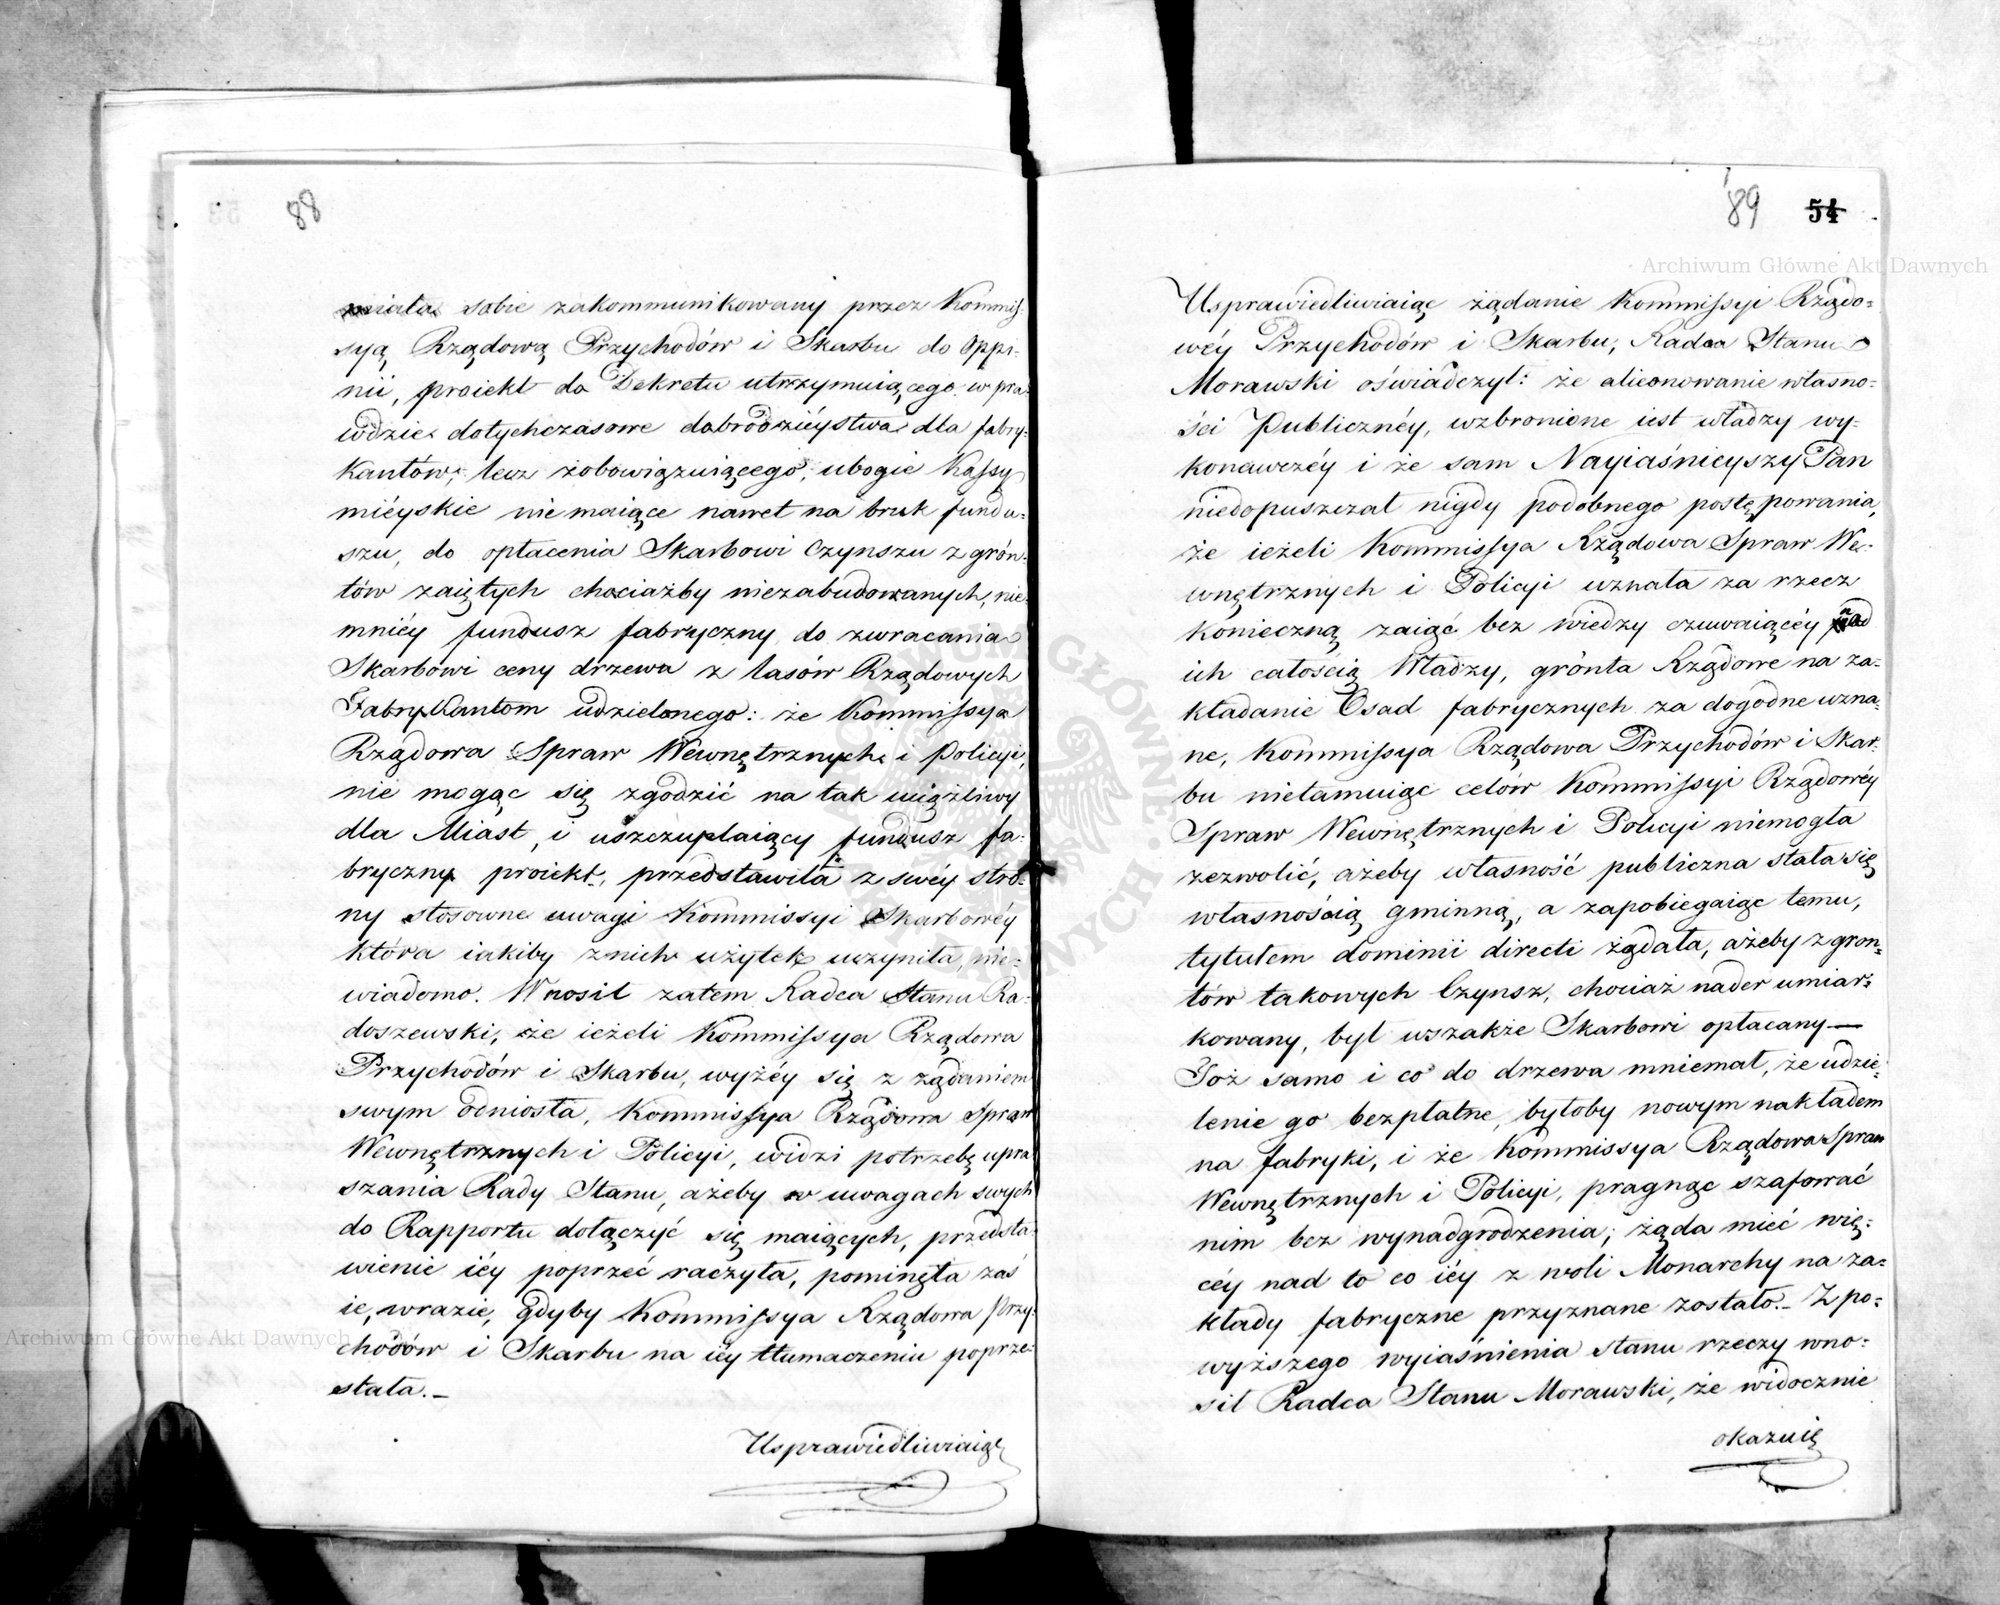 88
miała sobie zakommunikowany przez Kommis-
syą Rządową Przychodów i Skarbu do Oppi-
nii, proiekt do Dekretu utrzymuiącego w pra-
wdzie dotychczasowe dobrodzieystwa dla fabry-
kantów, lecz zobowiązuiącego, ubogie Kassy
miéyskie nie maiące nawet na bruk fundu-
szu, do opłacenia Skarbowi Czynszu z grón-
tów zaiętych chociażby niezabudowanych, nie-
mniéy fundusz fabryczny do zwracania
Skarbowi ceny drzewa z lasów Rządowych
Fabrykantom udzielonego: że Kommissya
Rządowa Spraw Wewnętrznych i Policyi,
nie mogąc się zgodzić na tak uciążliwy
dla Miast, i uszczuplaiący fundusz fa-
bryczny proiekt, przedstawiła z swéy stro-
ny stosowne uwagi Kommissyi Skarbowéy
która iakiby z nich użytek uczyniła, nie-
wiadomo. Wnosił zatem Radca Stanu Ra-
doszewski, że ieżeli Kommissya Rządowa
Przychodów i Skarbu, wyżéy się z żądaniem
swym odniosła, Kommissya Rządowa Spraw
Wewnętrznych i Policyi, widzi potrzebę upra-
szania Rady Stanu, ażeby w uwagach swych
do Rapportu dołączyć się maiących, przedsta-
wienie iéy poprzeć raczyła, pominęła zaś
ie, wrazie, gdyby Kommissya Rządowa Przy-
chodów i Skarbu na iéy tłumaczeniu poprze-
stała._
Usprawiedliwiaiąc
89 54
Archiwum Główne Akt Dawnych
Usprawiedliwiaiąc żądanie Kommissyi Rządo-
wéy Przychodów i Skarbu, Radca Stanu
Morawski oświadczył: że alienowanie własno-
ści Publicznéy, wzbronione iest władzy wy-
konawczéy i że sam Nayiaśnieyszy Pan
niedopuszczał nigdy podobnego postępowania,
że ieżeli Kommissya Rządowa Spraw We-
wnętrznych i Policyi uznała za rzecz
konieczną zaiąć bez wiedzy czuwaiącéy nad
ich całością Władzy, grónta Rządowe na za-
kładanie Osad fabrycznych za dogodne uzna-
ne, Kommissya Rządowa Przychodów i Skar-
bu nietamuiąc celów Kommissyi Rządowéy
Spraw Wewnętrznych i Policyi niemogła
zezwolić, ażeby własność publiczna stała się
własnością gminną, a zapobiegaiąc temu,
tytułem dominii directi żądała, ażeby z gron-
tów takowych Czynsz, chociaż nader umiar-
kowany, był wszakże Skarbowi opłacany—
Toż samo i co do drzewa mniemał, że udzie-
lenie go bezpłatne, byłoby nowym nakładem
na fabryki, i że Kommissya Rządowa Spraw
Wewnętrznych i Policyi, pragnąc szafować
nim bez wynadgrodzenia; żąda mieć wię-
céy nad to co iéy z woli Monarchy na za-
kłady fabryczne przyznane zostało._ Z po-
wyższego wyiaśnienia stanu rzeczy wno-
sił Radca Stanu Morawski, że widocznie
okazuię
Archiwum Główne Akt Dawnych